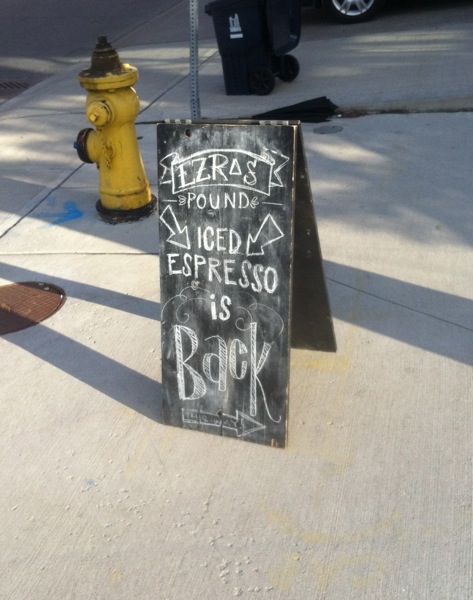 EZRAS
POUND
ICED
ESPRESSO
is
Back